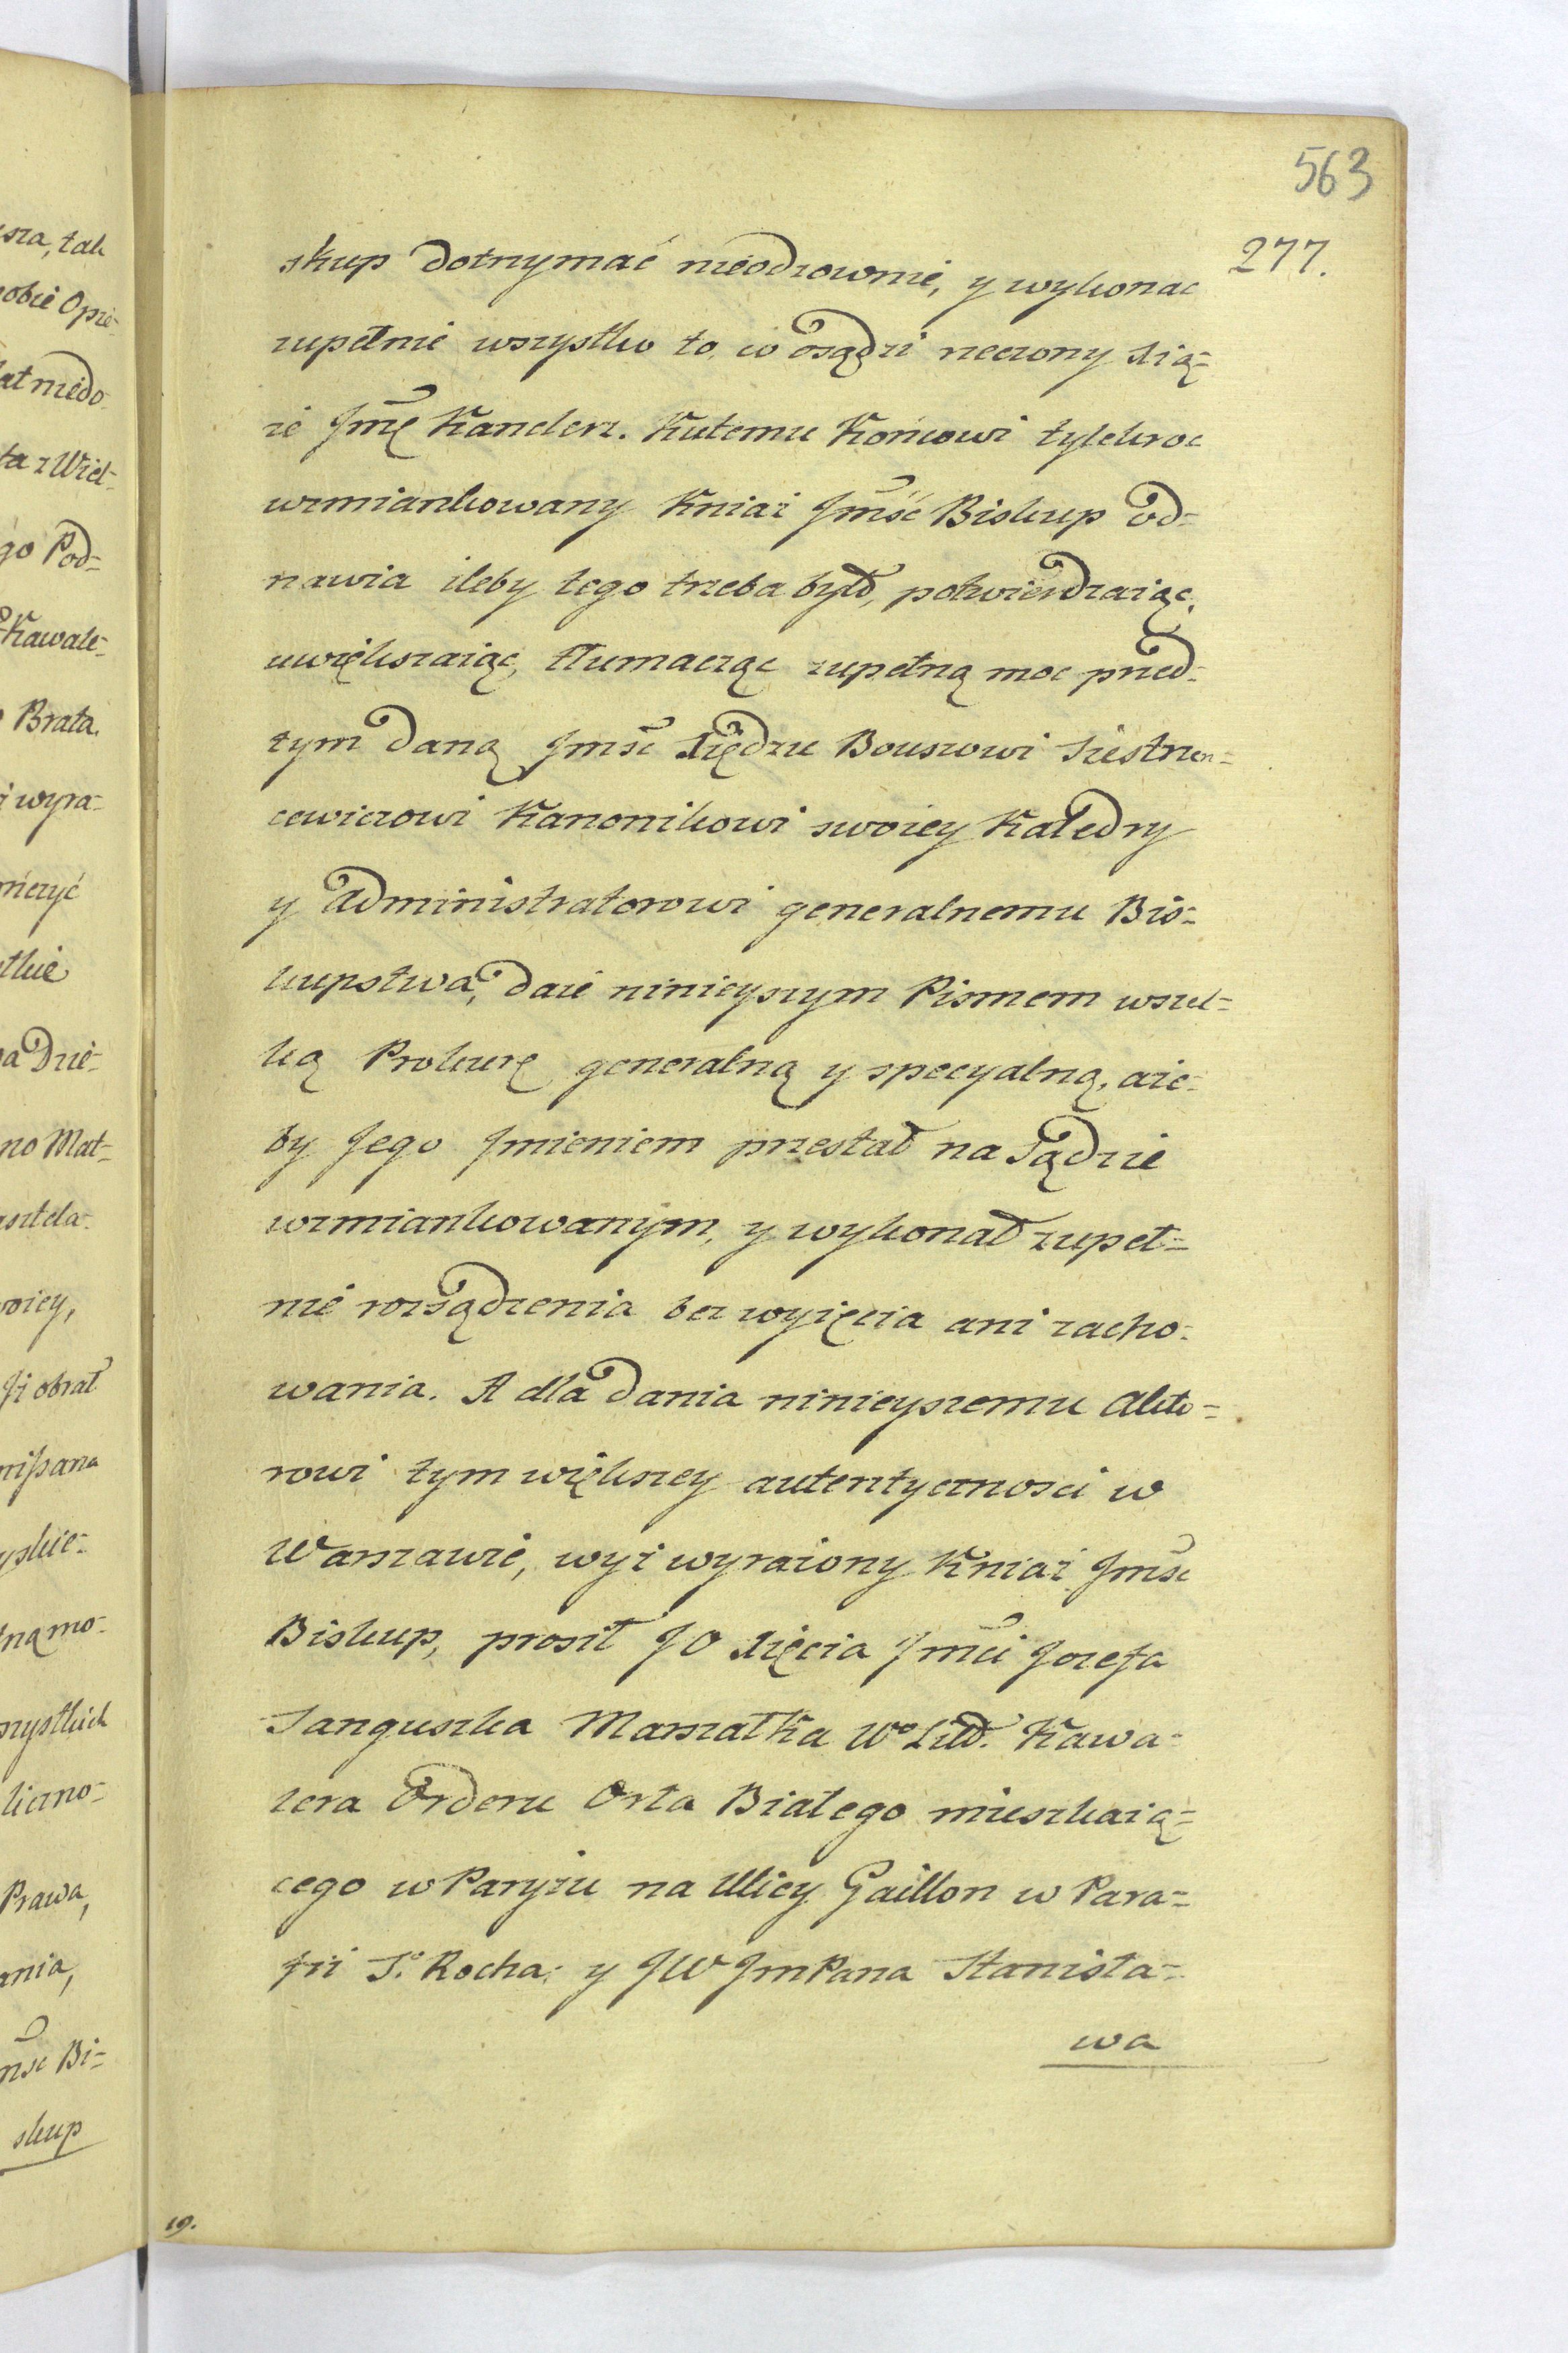 563
277.
skup dotrzymać nieodzownie, y wykonac
zupełnie wszystko to, co osądzi rzeczony Xią=
że Jmć Kanclerz. Ku temu Końcowi tylekroc
wzmiankowany Kniaź Jmść Biskup od=
nawia ileby tego trzeba było, potwierdzaiąc,
uwiększaiąc, tłumacząc zupełną moc przed=
tym daną Jmść Xiędzu Bouszowi Siestrzen=
cewiczowi Kanonikowi swoiey Katedry
y Administratorowi generalnemu Bis=
kupstwa, daie ninieyszym Pismem wszel=
ką Prokurę generalną y specyalną, aże=
by Jego Jmieniem przestał na Sądzie
wzmiankowanym, y wykonał zupeł=
nie rozsądzenia bez wyięcia ani zacho=
wania. A dla dania ninieyszemu Akto=
rowi tym większey autentyczności w
Warszawie, wyż wyrażony Kniaź Jmść
Biskup, prosił JO Xięcia Jmści Jozefa
Sanguszka Marszałka Wo Litt. Kawa=
lera Orderu Orła Białego mieszkaią=
cego w Paryżu na Ulicy Gaillon w Para=
fii So. Rocha; y JW JmPana Stanisła=
wa
19.
sza, tak
sobie Opie=
lat niedo=
ta z Wiel=
go Pod=
Kawale=
Brata.
i wyra=
ończyć
stkie
na Dzie=
no Mat=
sztela=
woiey,
Ji obrał
pissana
yskie=
łną mo=
szystkich
liczno=
Prawa,
ania,
mść Bi=
skup